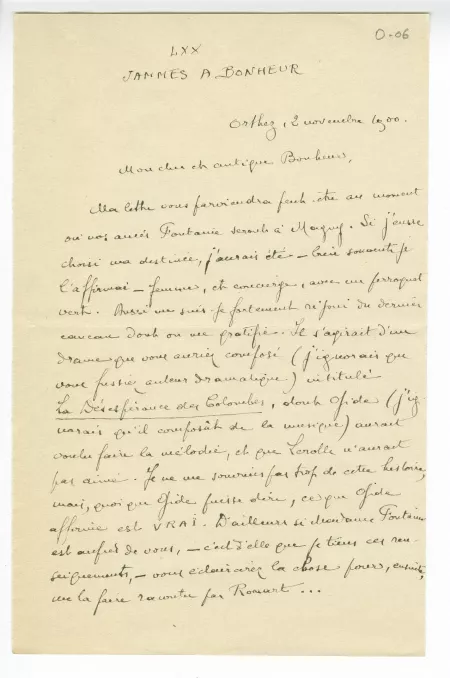 O-06
LXX
JAMMES A BONHEUR
Orthez, 2 novembre 1900.
Mon cher et antique Bonheur,
Ma lettre vous parviendra peut-être au moment
où vos amis Fontaine seront à Magny. Si j'eusse
choisi ma destinée, j'aurais été – bien souvent je
l'affirmai – femme, et concierge, avec un perroquet
vert. Aussi me suis-je fortement réjoui du dernier
cancan dont on me gratifie. Il s'agirait d'un
drame que vous auriez composé (j'ignorais que
vous fussiez auteur dramatique) intitulé
La Désespérance des Colombes, dont Gide (j'ig-
norais qu'il composât de la musique) aurait
voulu faire la mélodie, et que Lerolle n'aurait
pas aimé. Je ne me souviens pas trop de cette histoire,
mais, quoique Gide puisse dire, ce que Gide
affirme est VRAI. D'ailleurs si Madame Fontaine
est auprès de vous, – c'est d'elle que je tiens ces ren-
seignements, – vous éclaircirez la chose pour, ensuite,
me la faire raconter par Romart ...